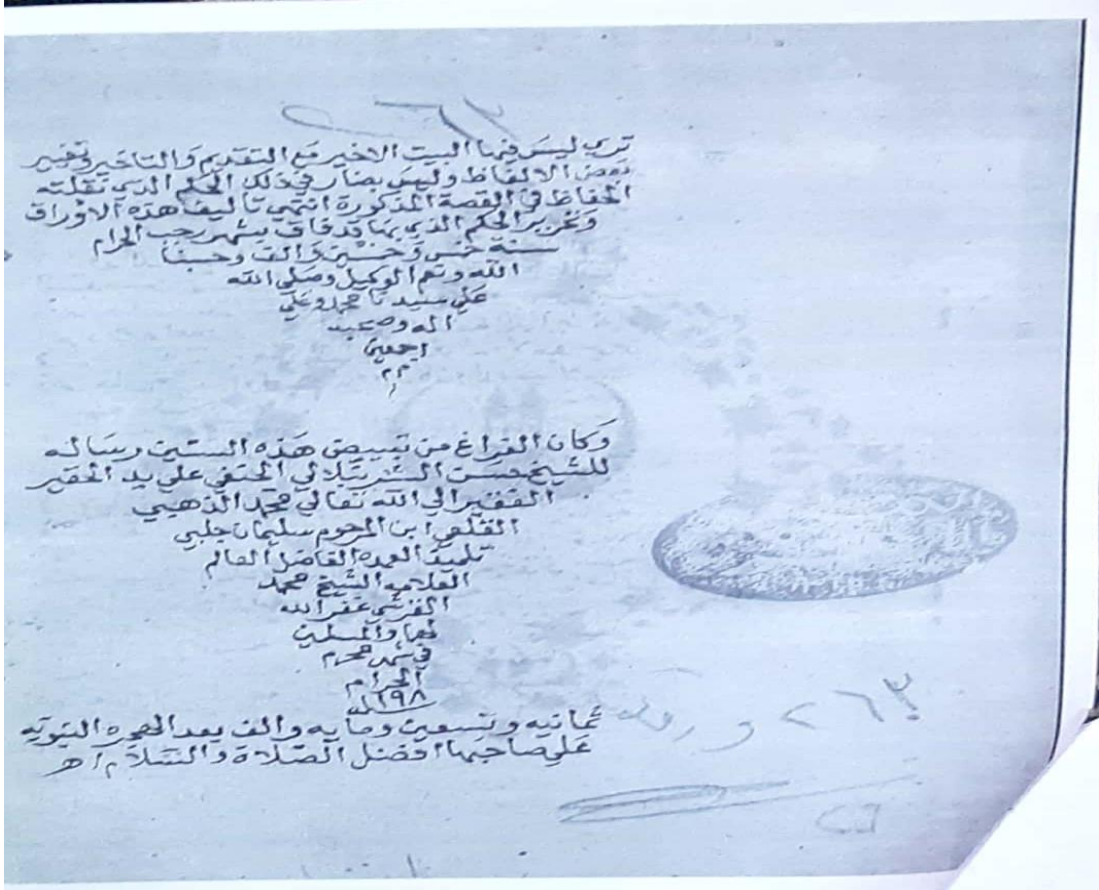 ترى ليس فيها البيت الاخير مع التقديم والتاخير وتغيير
بعض الالفاظ وليس بضار في ذلك الحكم الذي نقلته
الحفاظ في القصة المذكورة انتهى تاليف هذه الاوراق
وتحرير الحكم الذي بها قد فاق بشهر رجب الحرام
سنة خمس وخمسين والف وحسبنا
الله ونعم الوكيل وصلى الله
على سيدنا محمد وعلى
اله وصحبه
اجمعين
م م
م
وكان الفراغ من تبييض هذه الستين رساله
للشيخ حسن الشرنبلالي الحنفي على يد الحقير
الفقير الى الله تعالى محمد الذهبي
القلعي ابن المرحوم سليمان جلبي
تلميذ العمدة الفاضل العالم
العلامه الشيخ محمد
غفر الله
لهما والمسلمين
في شهر محرم
الحرام
سنة ١١٩٨
ثمانيه وتسعين ومايه والف بعد الهجره النبويه
على صاحبها افضل الصلاة والسلام اهـ
ورقة